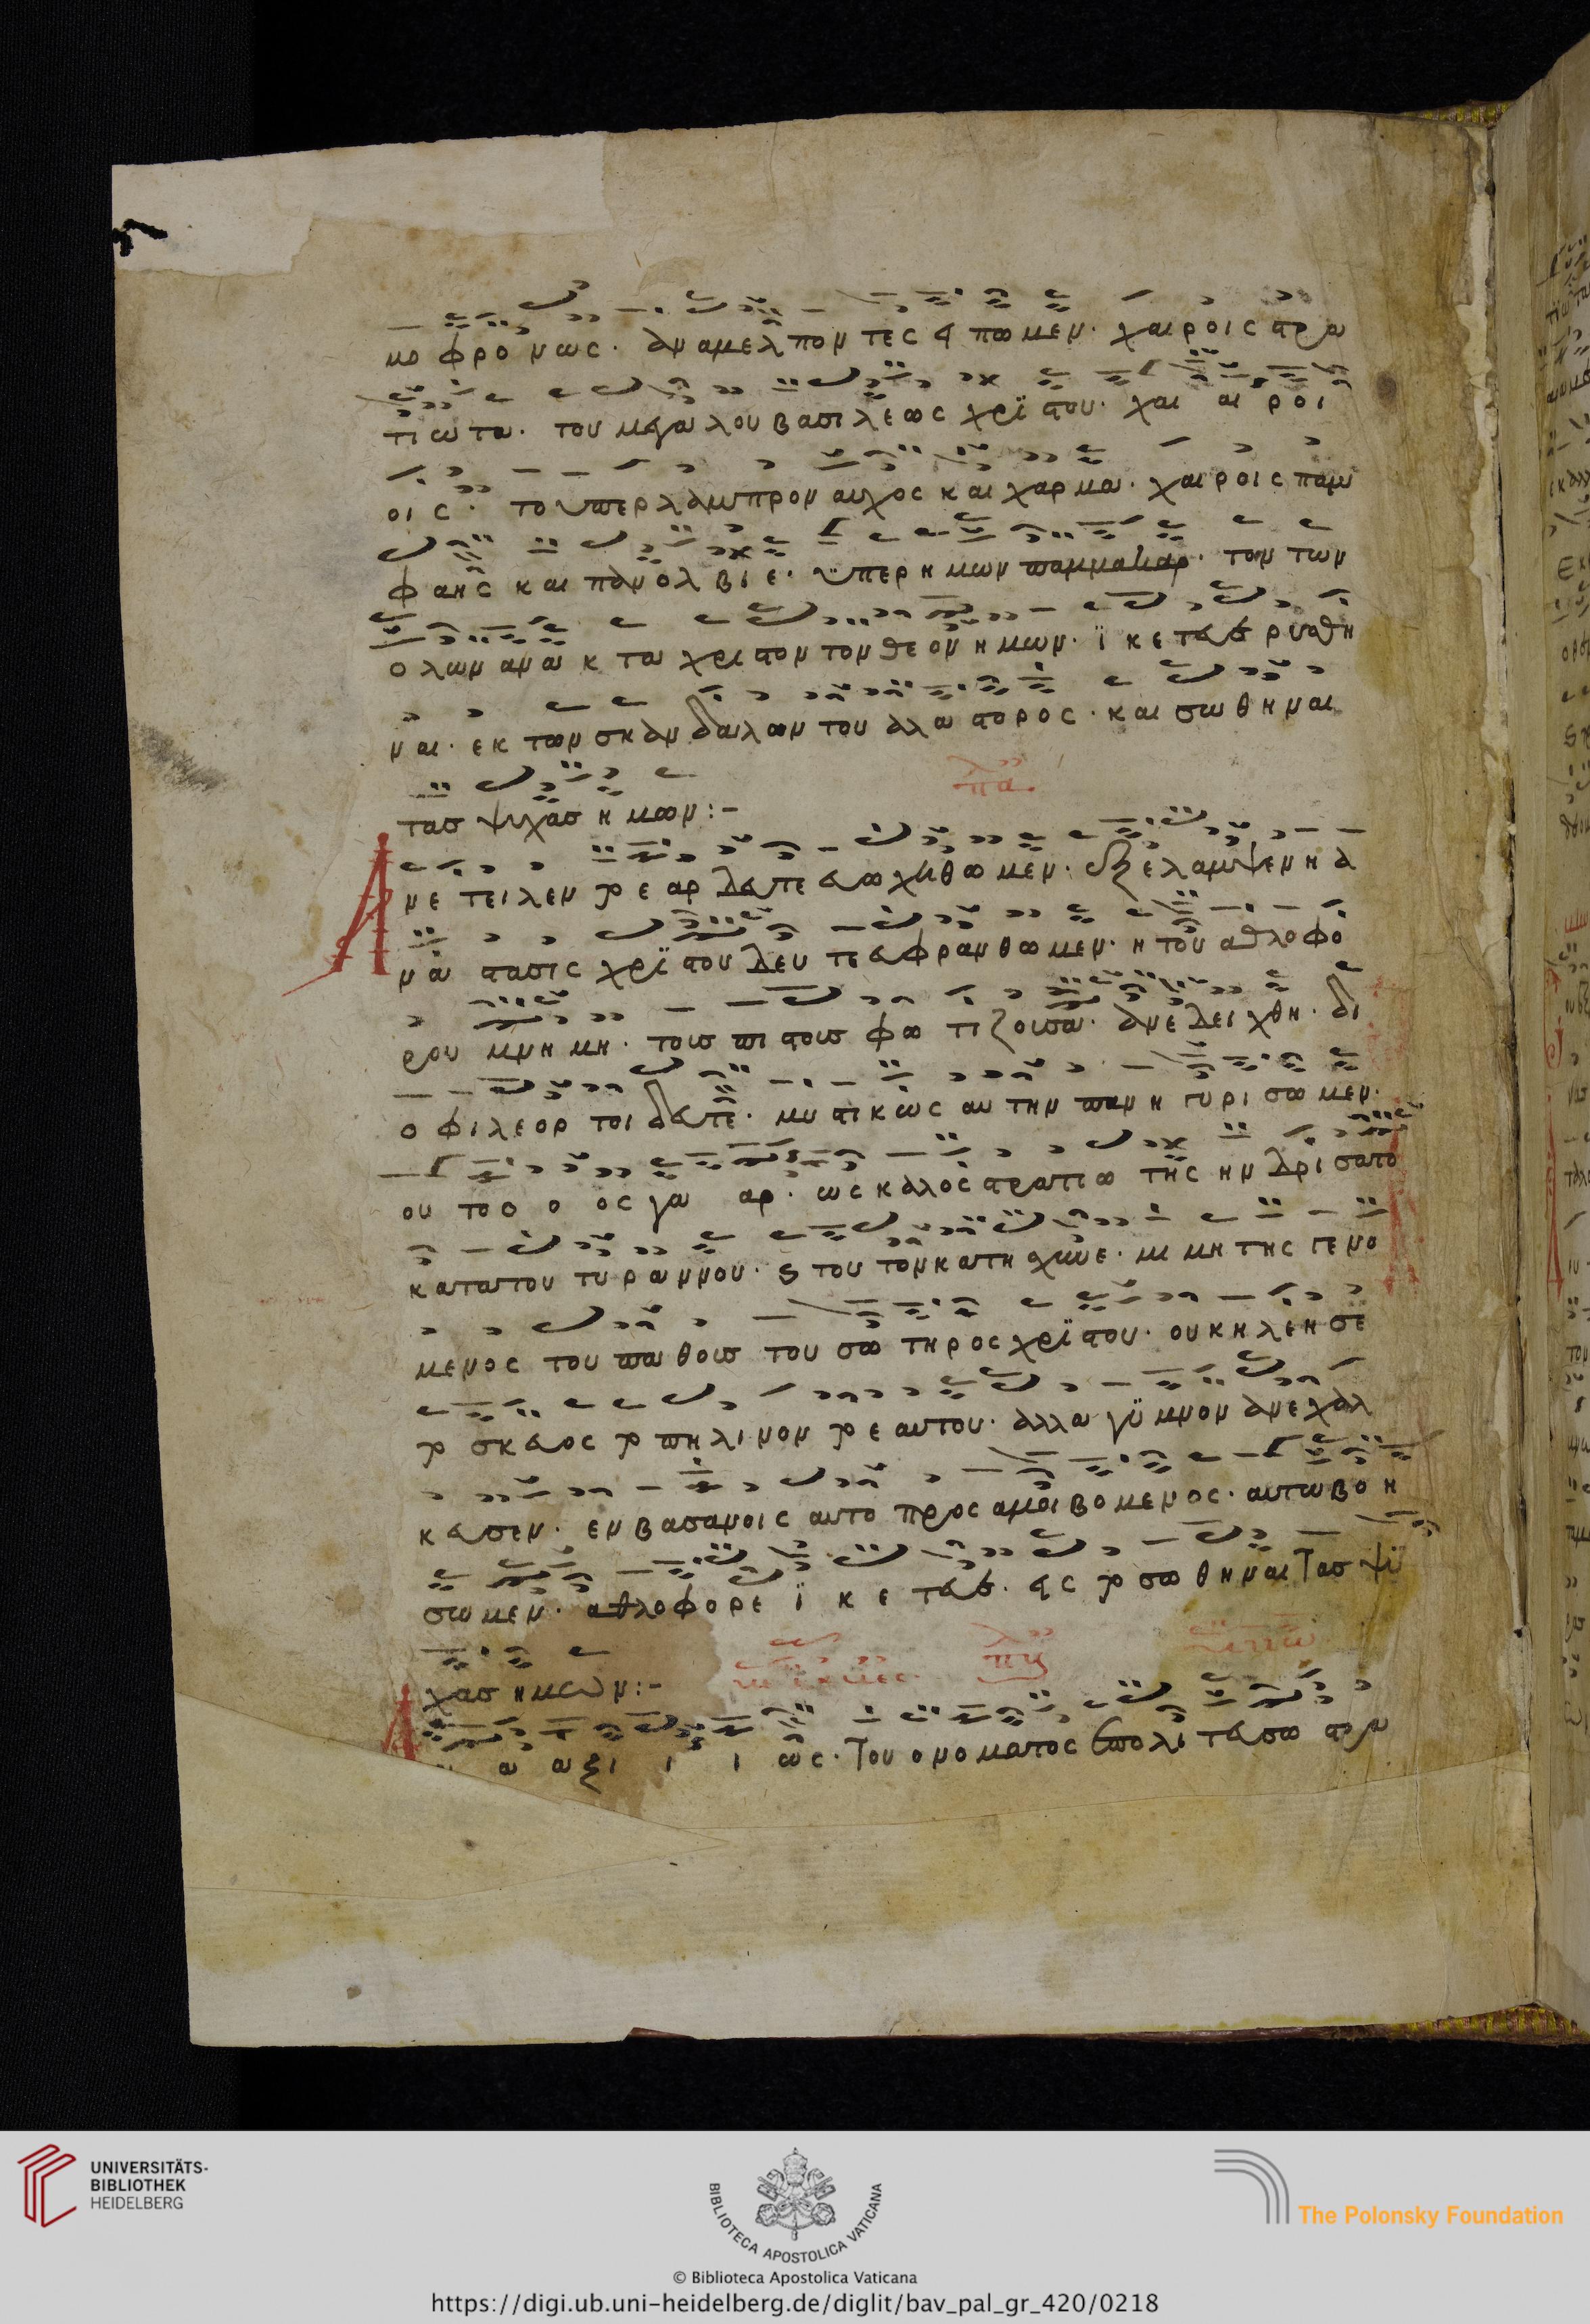 μο φρο νως · αναμελ πον τες ει πω μεν · χαι ροις στρα
τι ω τα · του μεγα λου βασι λε ως χρι στου · χαι αι ροι
οι ς · το υπερ λαμπρον αυχος και χαρ μα · χαι ροις παμ
φα ης και παν ολ βι ε · υπερ η μων παμμακαρ · τον των
ο λων ανα κ τα χρι στον τον θε ον η μων · ι κε τευε ρυσθη
ναι · εκ των σκαν δαλων του αλα στορος · και σω θη ναι
πα
τας ψυχας η μων :-
Α νε τειλεν το ε αρ δευτε ευω χηθω μεν · εξελαμψεν η α
να στασις χρι στου δευ τε ευφραν θω μεν · η του αθλοφο
ρου μνη μη · τους πι στους φω τιζουσα · ανε δει χθη · δι
ο φιλεορ τοι δευτε · μυ στι κως αυ την πανη γυρι σω μεν ·
ου το ο ο ος γα αρ · ως καλος στρατιω της ην δρι σατο
κατα του τυ ραννου · ϛ του τον κατη σχυνε · μι μη της γε νο
μενος του παθους του σω τηρος χρι στου · ουκ η λεη σε
το σκευος το πηλι νον το ε αυτου · αλλα γυ μνον ανεχαλ
κευσεν · εν βασανοις αυτο προς αμοι βο μενος · αυτω βο η
σωμεν · αθλοφορε ι κ ε τευε · εις το σω θηναι τας ψυ
χας ημων :-
α αξι ι ι ως · του ονο ματος επολι τευσω στρα
UNIVERSITÄTS-
BIBLIOTHEK
HEIDELBERG
BIBLIOTECA APOSTOLICA VATICANA
The Polonsky Foundation
© Biblioteca Apostolica Vaticana
https://digi.ub.uni-heidelberg.de/diglit/bav_pal_gr_420/0218